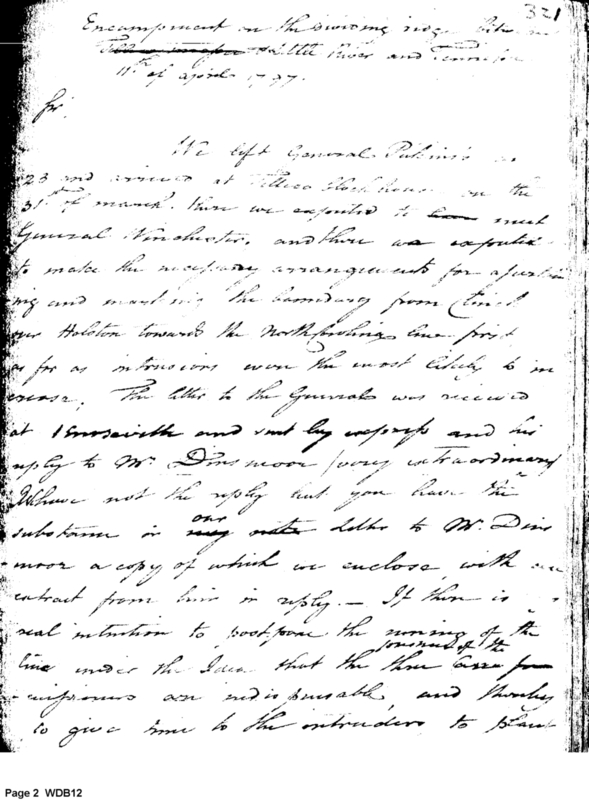 321
Encampment on the dividing ridge between
Little River and Tennessee
11th of april 1797.
Sir,
We left General Pickins's on
23 and arrived at Tellico Blockhouse on the
31st of march. there we expected to meet
General Winchester, and there we expected
to make the necessary arrangements for ascertain
ing and marking the boundary from Clinch
over Holston towards the North Carolina line first
as far as intrusions were the most likely to in
crease; The letter to the General was received
at Knoxville and sent by express and his
reply to Mr. Dinsmoor very extraordinary
We have not the reply but you have the
substance in our letter to Mr. Dins
moor a copy of which we enclose, with an
extract from him in reply. — If there is a
real intention to postpone the running of the
line under the Idea that the presence of the three com
missioners are indispensable, and thereby
to give time to the intruders to plant
Page 2 WDB12